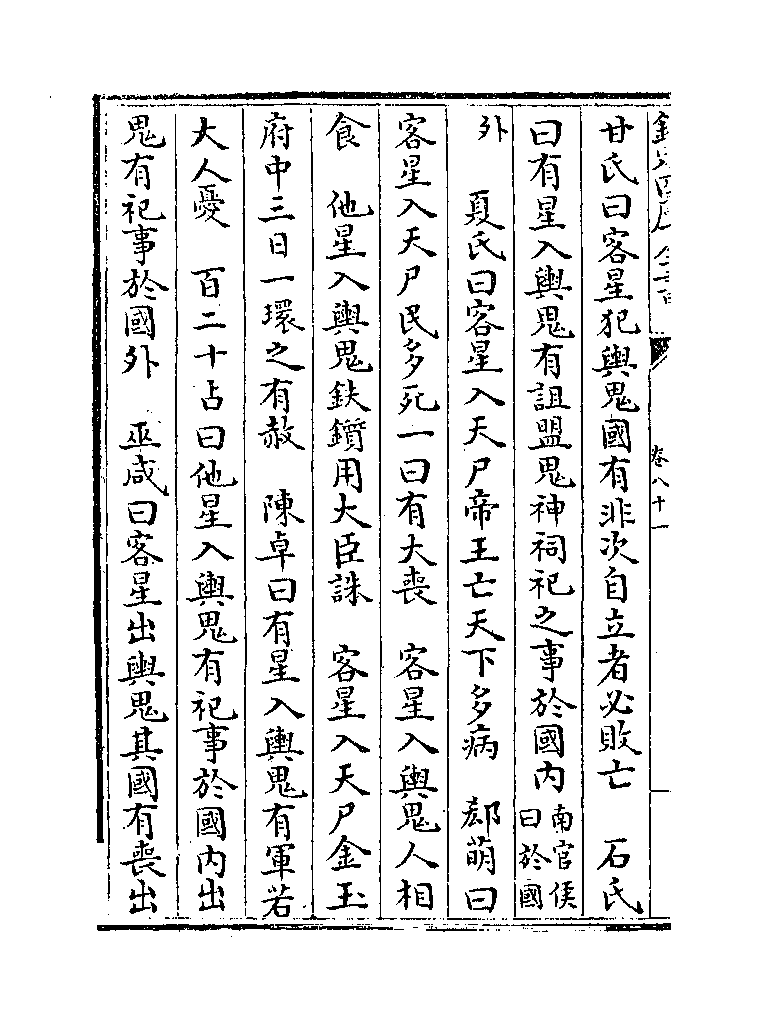 卷八十一
甘氏曰客星犯輿鬼國有非次自立者必敗亡　石氏
曰有星入輿鬼有詛盟鬼神祠祀之事於國内南官侯曰於國
外　夏氏曰客星入天尸帝王亡天下多病　郄萌曰
客星入天尸民多死一曰有大喪　客星入輿鬼人相
食　他星入輿鬼鈇鑕用大臣誅　客星入天尸金玉
府中三日一環之有赦　陳卓曰有星入輿鬼有軍若
大人憂　百二十占曰他星入輿鬼有祀事於國内出
鬼有祀事於國外　巫咸曰客星出輿鬼其國有喪出